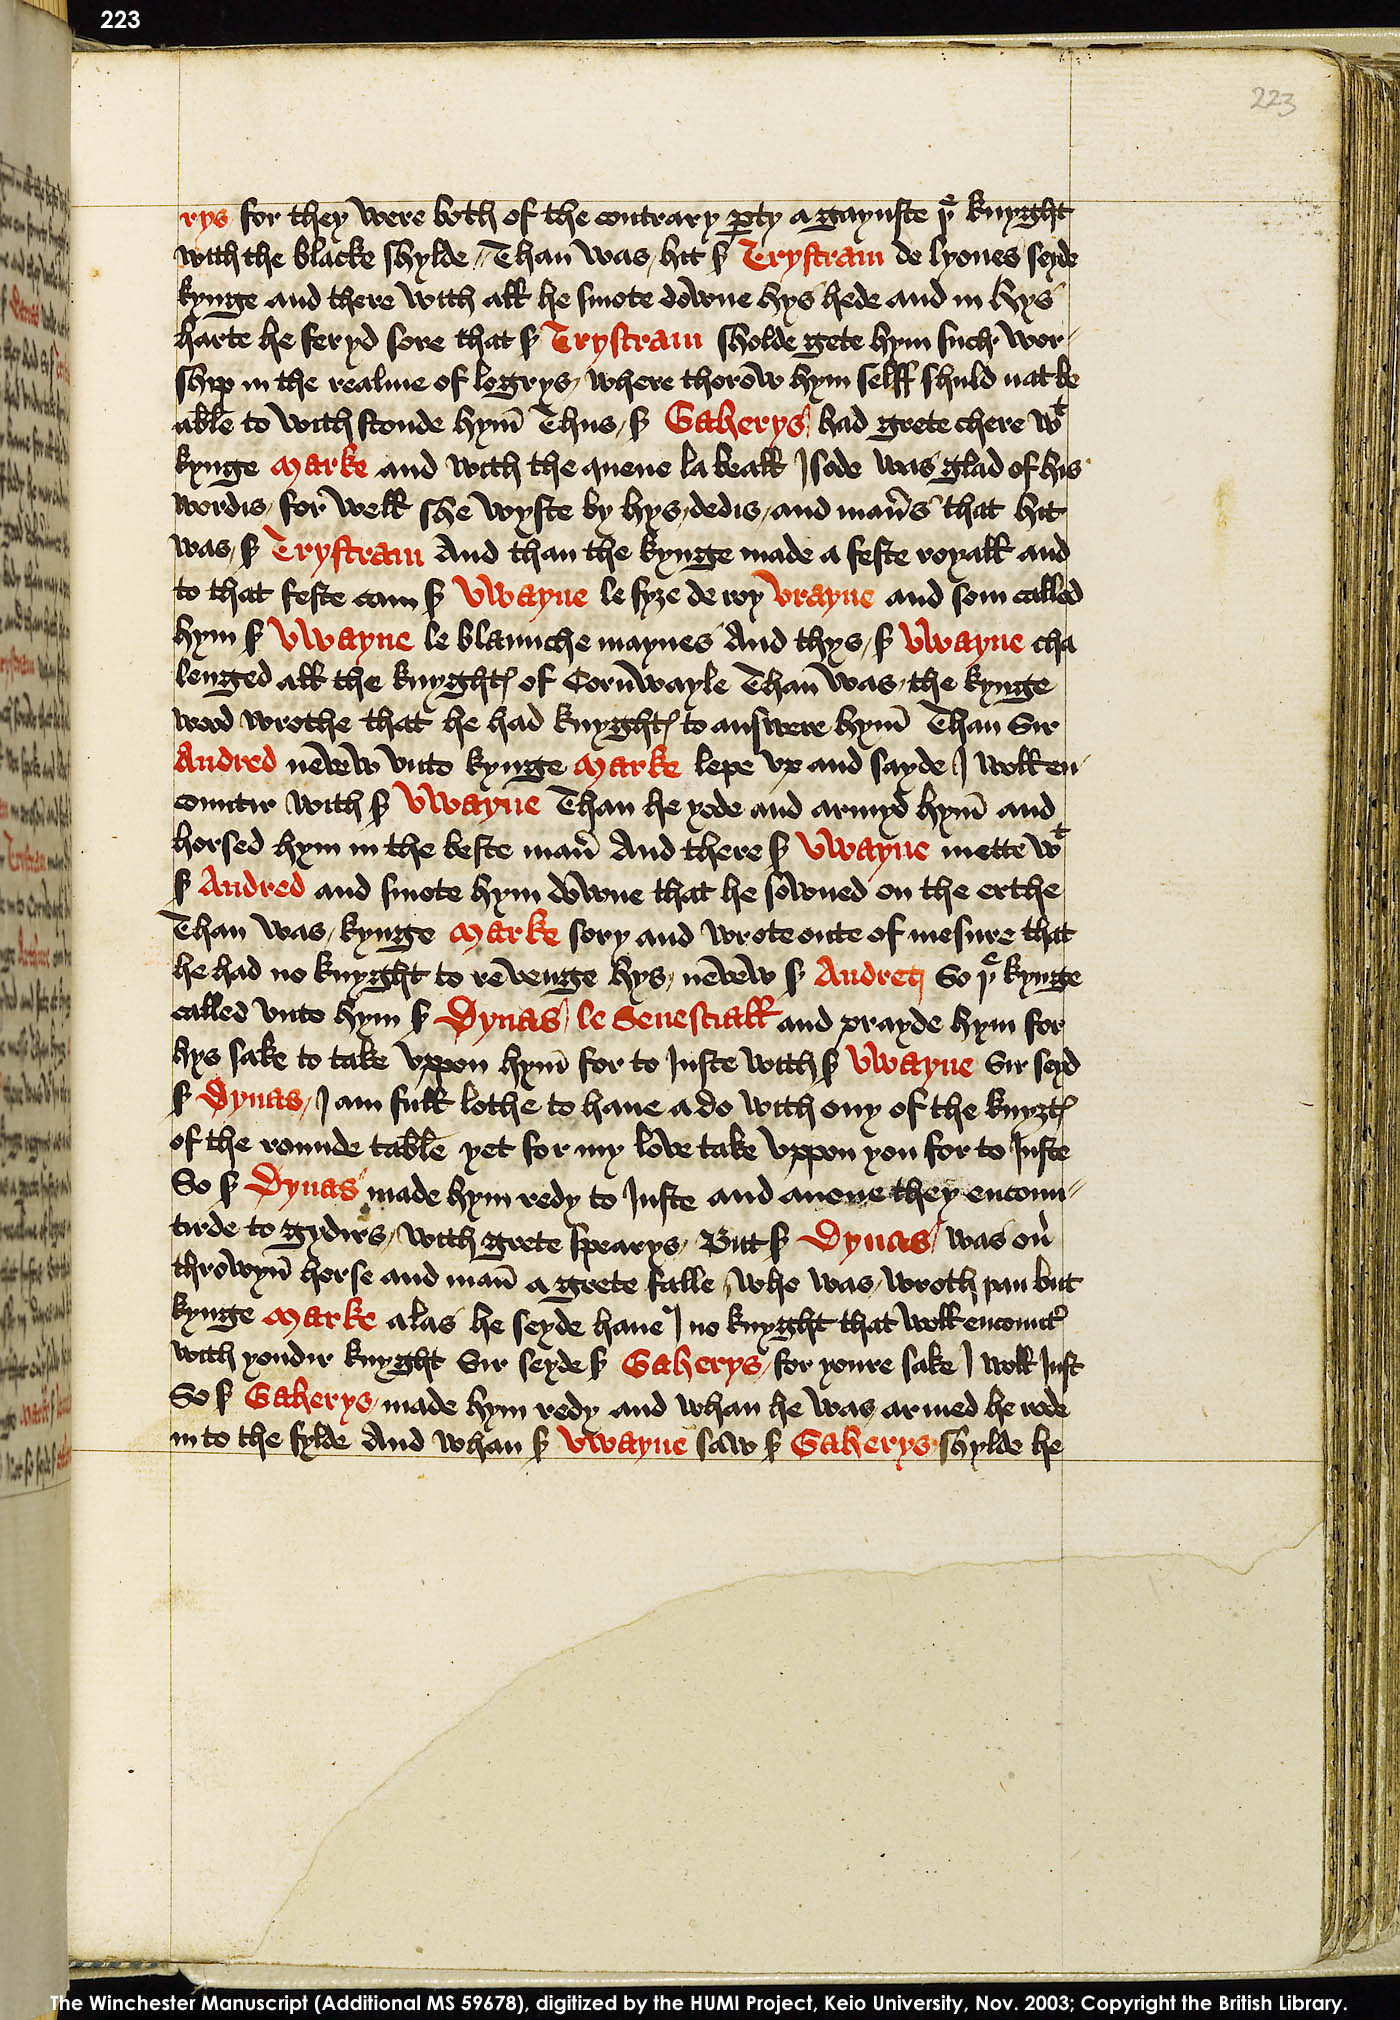 223
223
rys for they were both of the contrary ꝑty a gaynste þͤ knyght
with the blacke shylde // Than was hit ẜ Trystram de lyones seyde
kynge and there with all he smote downe hys hede and in hys
harte he feryd sore that ẜ Trystram sholde gete hym such wor-
shyp in the realme of logrys / where thorow hym selff shuld nat be
able to with stonde hym̄ Thus / ẜ Gaherys had grete chere wͭ
kynge Marke and with the quene la beall Isode was glad of his
wordis / for well she wyste by hys / dedis / and man̄s that hit
was / ẜ Trystram And than the kynge made a feste royall and
to that feste cam ẜ Vwayne le fyze de roy Vrayne and som called
hym ẜ Vwayne le blaunche maynes And thys / ẜ Vwayne cha
lenged all the knyghtꝭ of Corn̄wayle Than̄ was / the kynge
wood wrothe that he had knyghtꝭ to answere hym̄ Than Sir
Andred nevew vnto kynge Marke lepe vp and sayde I woll en-
countir with ẜ Vwayne Than he yode and armyd hym̄ and
horsed hym in the beste man̄ And there ẜ Vwayne mette wͭ
ẜ Andred and smote hym downe that he sowned on the erthe
Than was / kynge Marke sory and wrote oute of mesure that
he had no knyght to revenge hys / nevew ẜ Andret So þͤ kynge
called vnto hym ẜ Dynas / le Senesciall and prayde hym for
hys sake to take vppon hym̄ for to Juste with ẜ Vwayne Sir seyd
ẜ Dynas / I am full lothe to haue a do with ony of the knyȝtꝭ
of the rounde table yet for my love take vppon you for to Juste
So ẜ Dynas made hym redy to Juste and anone they encoun-
tirde to gydirs / with grete spearys / But ẜ Dynas / was on̄
throwyn̄ horse and man̄ a grete falle / who was / wroth þan but
kynge Marke alas he seyde haue I no knyght that woll encount̄
with yondir knyght Sir seyde ẜ Gaherys / for youre sake I woll Just
So ẜ Gaherys / made hym redy and whan he was armed he rode
in to the fylde And whan ẜ Vwayne saw ẜ Gaherys shylde he
The Winchester Manuscript (Additional MS 59678), digitized by the HUMI Project, Keio University, Nov. 2003; Copyright the British Library.